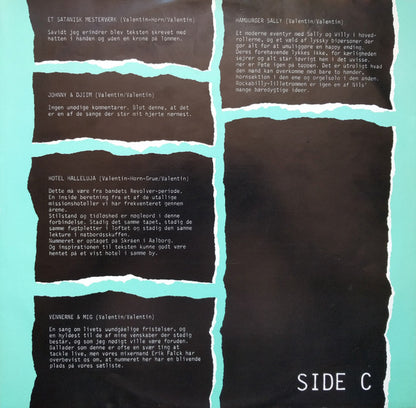 ET SATANISK MESTERVERK (Valentin-horn/Valentin)
Savidt jeg erindrer blev teksten skrevet med
hatten i handen og uden en krone på lommen.
JOHNNY & DJIIM (Valentin/Valentin)
Ingen unødige kommentarer. Slut denne, at det
er en af de sange der står mit hjerte nærmest.
HOTEL HALLELUJA (Valentin-Horn-Grue/Valentin)
Dette må være fra bandets Revolver-periode.
En inside beretning fra et af de utallige
missionshoteller vi har frekventeret gennem
årene.
Stilstand og tidløshed er nøgleord i denne
forbindelse. Stadig det samme tapet, stadig de
samme fugtpletter i loftet og stadig den samme
lekture i natbordsskuffen.
Nummeret er optaget på Skråen i Aalborg.
Og inspirationen til teksten kunne godt være
hentet på et vist hotel i samme by.
VENNERNE & MIG (Valentin/Valentin)
En sang om livets uundgåelige fristelser, og
en hyldest til de af mine venskaber der stadig
består, og som jeg nødigt ville være foruden.
Ballader som denne er ofte en svær ting at
tackle live, men vores mixermand Erik Falck har
overbevist os om, at nummeret her har en blivende
plads på vores sætliste.
HAMBURGER SALLY (Valentin/Valentin)
Et moderne eventyr med Sally og Willy i hoved-
rollerne, og et væld af lyssky bipersoner der
gør alt for at umuliggøre en happy ending.
Deres forehavende lykkes ikke, for kærligheden
sejrer og alt står lovrigt hen i det uvisse.
Her er Pete igen på toppen. Det er utroligt hvad
den mand kan overkomme med bare to hænder,
hornsektion i den ene og orgelsolo i den anden.
Rockabilly-lilletrommen er igen en af Nils'
mange bæredygtige ideer.
SIDE C